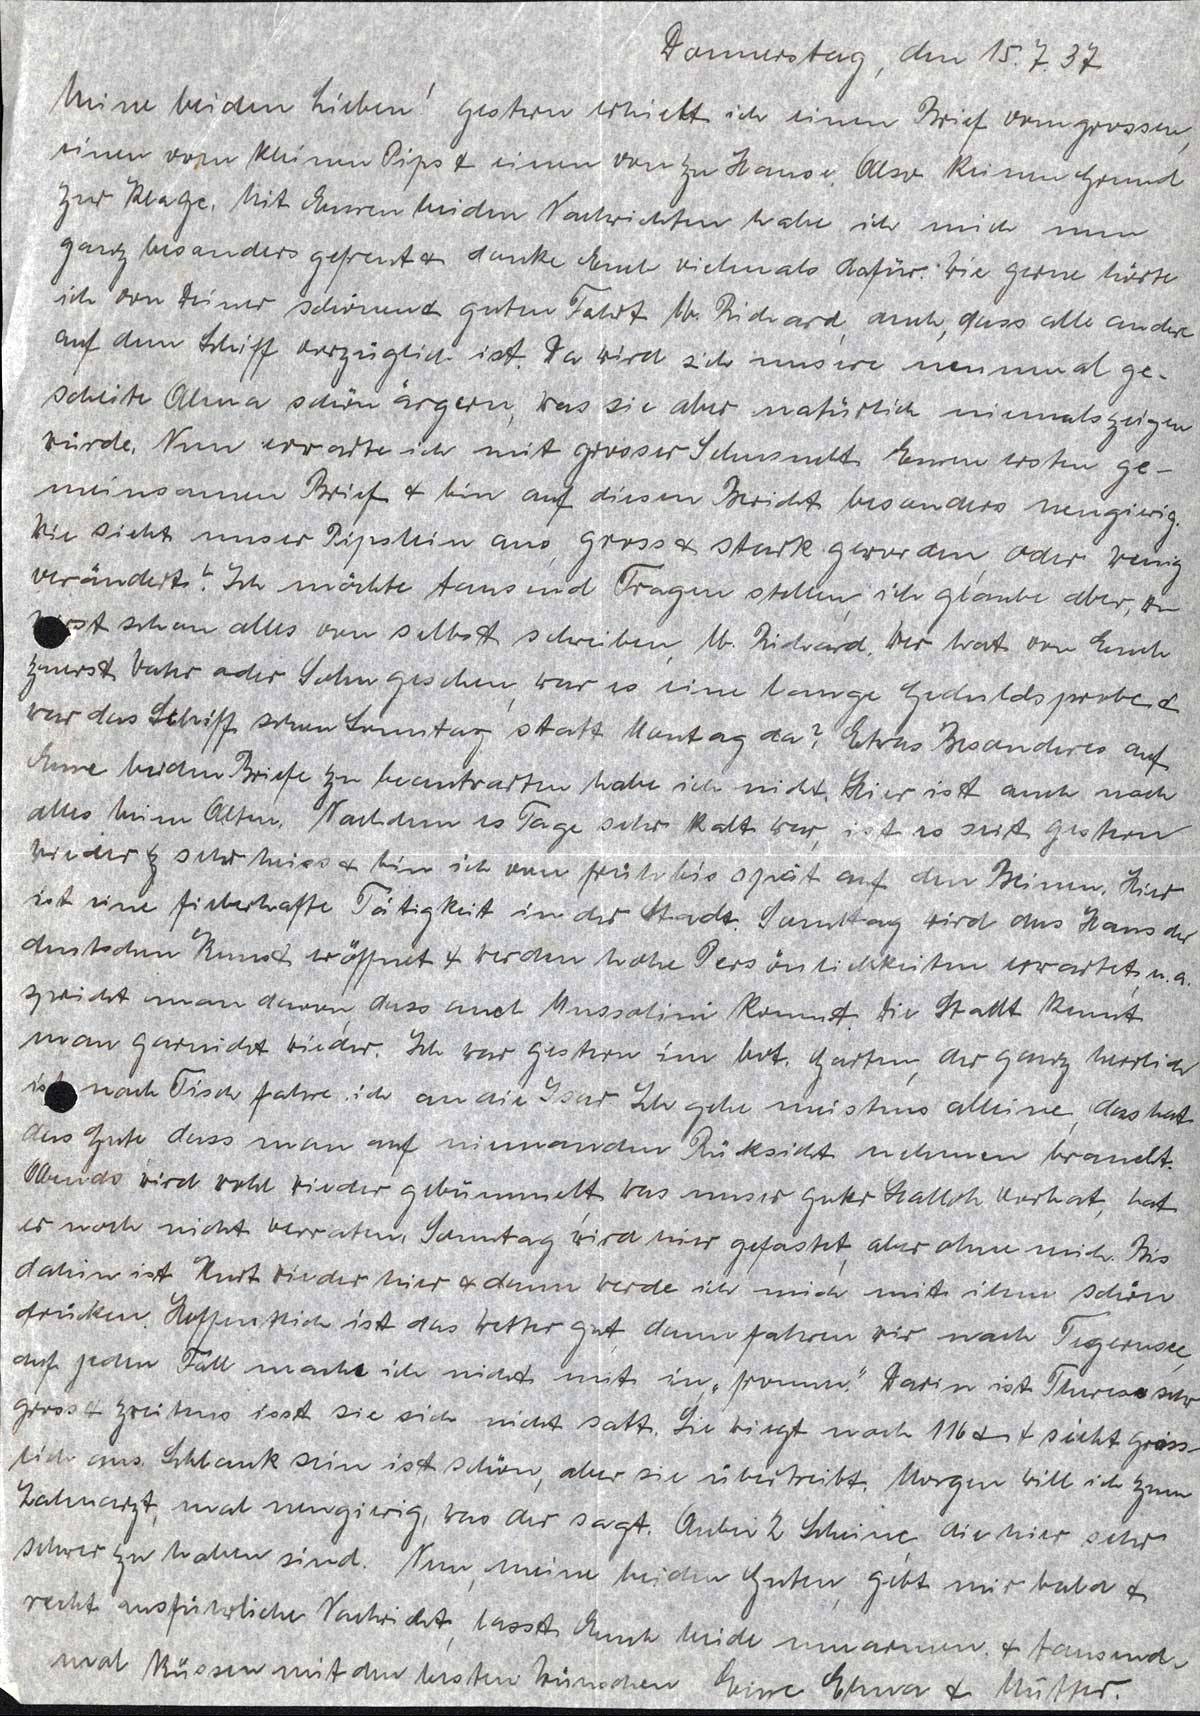 Donnerstag, den 15.7.37
Meine beiden Lieben! gestern erhielt ich einen Brief vom grossen,
einen vom kleinen Pips & einen von zu Hause. Also keinen Grund
zur Klage. Mit Euren beiden Nachrichten habe ich mich nun
ganz besonders gefreut & danke Euch vielmals dafür. Wie gerne hörte
ich von Deiner schönen & guten Fahrt lb. Richard, auch, dass alle andere
auf dem Schiff vorzüglich ist. Da wird sich unsere neunmal ge-
scheite Alma schön ärgern, was sie aber natürlich niemals zeigen
würde. Nun erwarte ich mit grosser Sehnsucht Euren ersten ge-
meinsamen Brief & bin auf diesen Bericht besonders neugierig.
Wie sieht unser Pipslein aus, gross & stark geworden, oder wenig
verändert? Ich möchte tausend Fragen stellen, ich glaube aber, Du
wirst schon alles von selbst schreiben, lb. Richard. Wer hat von Euch
zuerst Vater oder Sohn gesehen, war es eine lange Geduldsprobe &
war das Schiff schon Sonntag statt Montag da? Etwas Besonderes auf
Eure beiden Briefe zu beantworten habe ich nicht. Hier ist auch noch
alles beim Alten. Nachdem es Tage sehr kalt war, ist es seit gestern
wieder sehr heiss & bin ich von früh bis spät auf den Beinen. Hier
ist eine fieberhafte Tätigkeit in der Stadt. Sonntag wird das Haus der
deutschen Kunst eröffnet & werden hohe Persönlichkeiten erwartet, u.a.
spricht man davon, dass auch Mussolini kommt. Die Stadt kennt
man garnicht wieder. Ich war gestern im bot. Garten, der ganz herrlich
ist, nach Tisch fahre ich an die Isar. Ich gehe meistens alleine, das hat
das Gute dass man auf niemanden Rüksicht nehmen braucht.
Abends wird wohl wieder gebummelt, was unser guter vorhat, hat
er noch nicht verraten. Sonntag wird hier gefastet, aber ohne mich. Bis
dahin ist Kurt wieder hier & dann werde ich mich mit ihm schön
drücken. Hoffentlich ist das Wetter gut, dann fahren wir nach Tegernsee,
auf jeden Fall mache ich nicht mit in „fromm." Darin ist Therese sehr
gross & isst sie sich nicht satt. Sie wiegt noch 116 & sieht gräss-
lich aus. Schlank sein ist schön, aber sie übertreibt. Morgen will ich zum
Zahnarzt, mal neugierig, was der sagt. Anbei 2 Scheine, die hier sehr
schwer zu haben sind. Nun, meine beiden Guten, gebt mir bald &
recht ausführliche Nachricht, lasst Euch beide umarmen & tausend
mal küssen mit den besten Wünschen Eure Erna & Mutter.